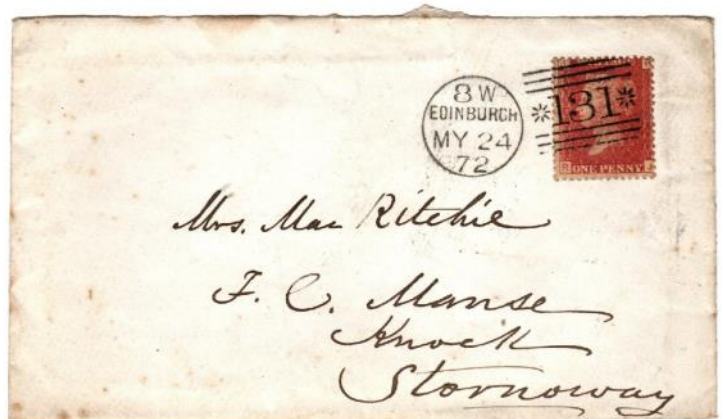 8 W
EDINBURGH
MY 24
72
*131*
ONE PENNY
Mrs. Mac Ritchie
F. C. Manse
Knock
Stornoway